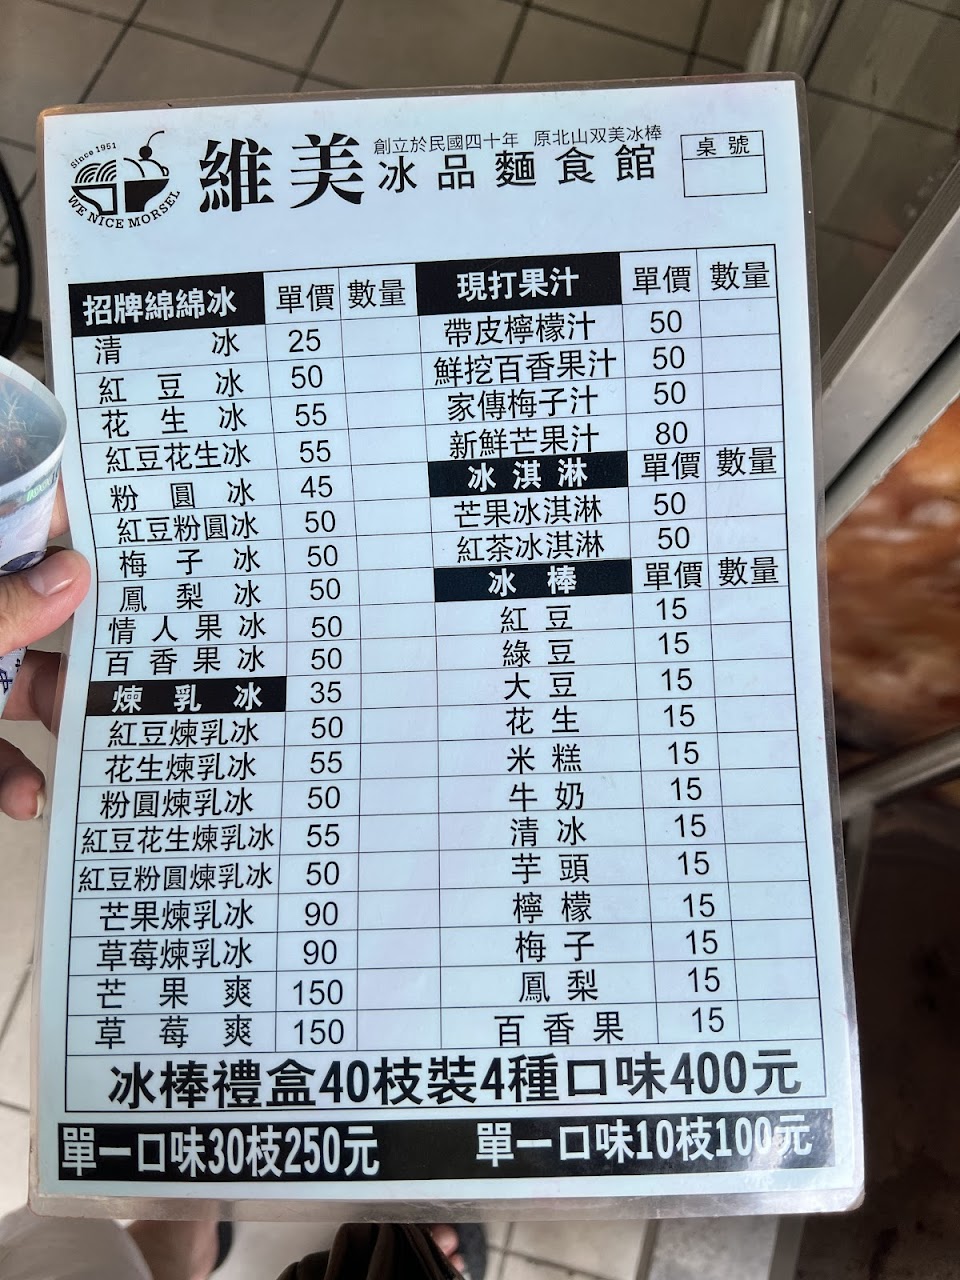 Since 1951
WE NICE MORSEL
維美
創立於民國四十年 原北山双美冰棒
冰品麵食館
桌號
招牌綿綿冰 單價 數量
清冰 25
紅豆冰 50
花生冰 55
紅豆花生冰 55
粉圓冰 45
紅豆粉圓冰 50
梅子冰 50
鳳梨冰 50
情人果冰 50
百香果冰 50
煉乳冰 35
紅豆煉乳冰 50
花生煉乳冰 55
粉圓煉乳冰 50
紅豆花生煉乳冰 55
紅豆粉圓煉乳冰 50
芒果煉乳冰 90
草莓煉乳冰 90
芒果爽 150
草莓爽 150
現打果汁 單價 數量
帶皮檸檬汁 50
鮮挖百香果汁 50
家傳梅子汁 50
新鮮芒果汁 80
冰淇淋 單價 數量
芒果冰淇淋 50
紅茶冰淇淋 50
冰棒 單價 數量
紅豆 15
綠豆 15
大豆 15
花生 15
米糕 15
牛奶 15
清冰 15
芋頭 15
檸檬 15
梅子 15
鳳梨 15
百香果 15
冰棒禮盒40枝裝4種口味400元
單一口味30枝250元 單一口味10枝100元